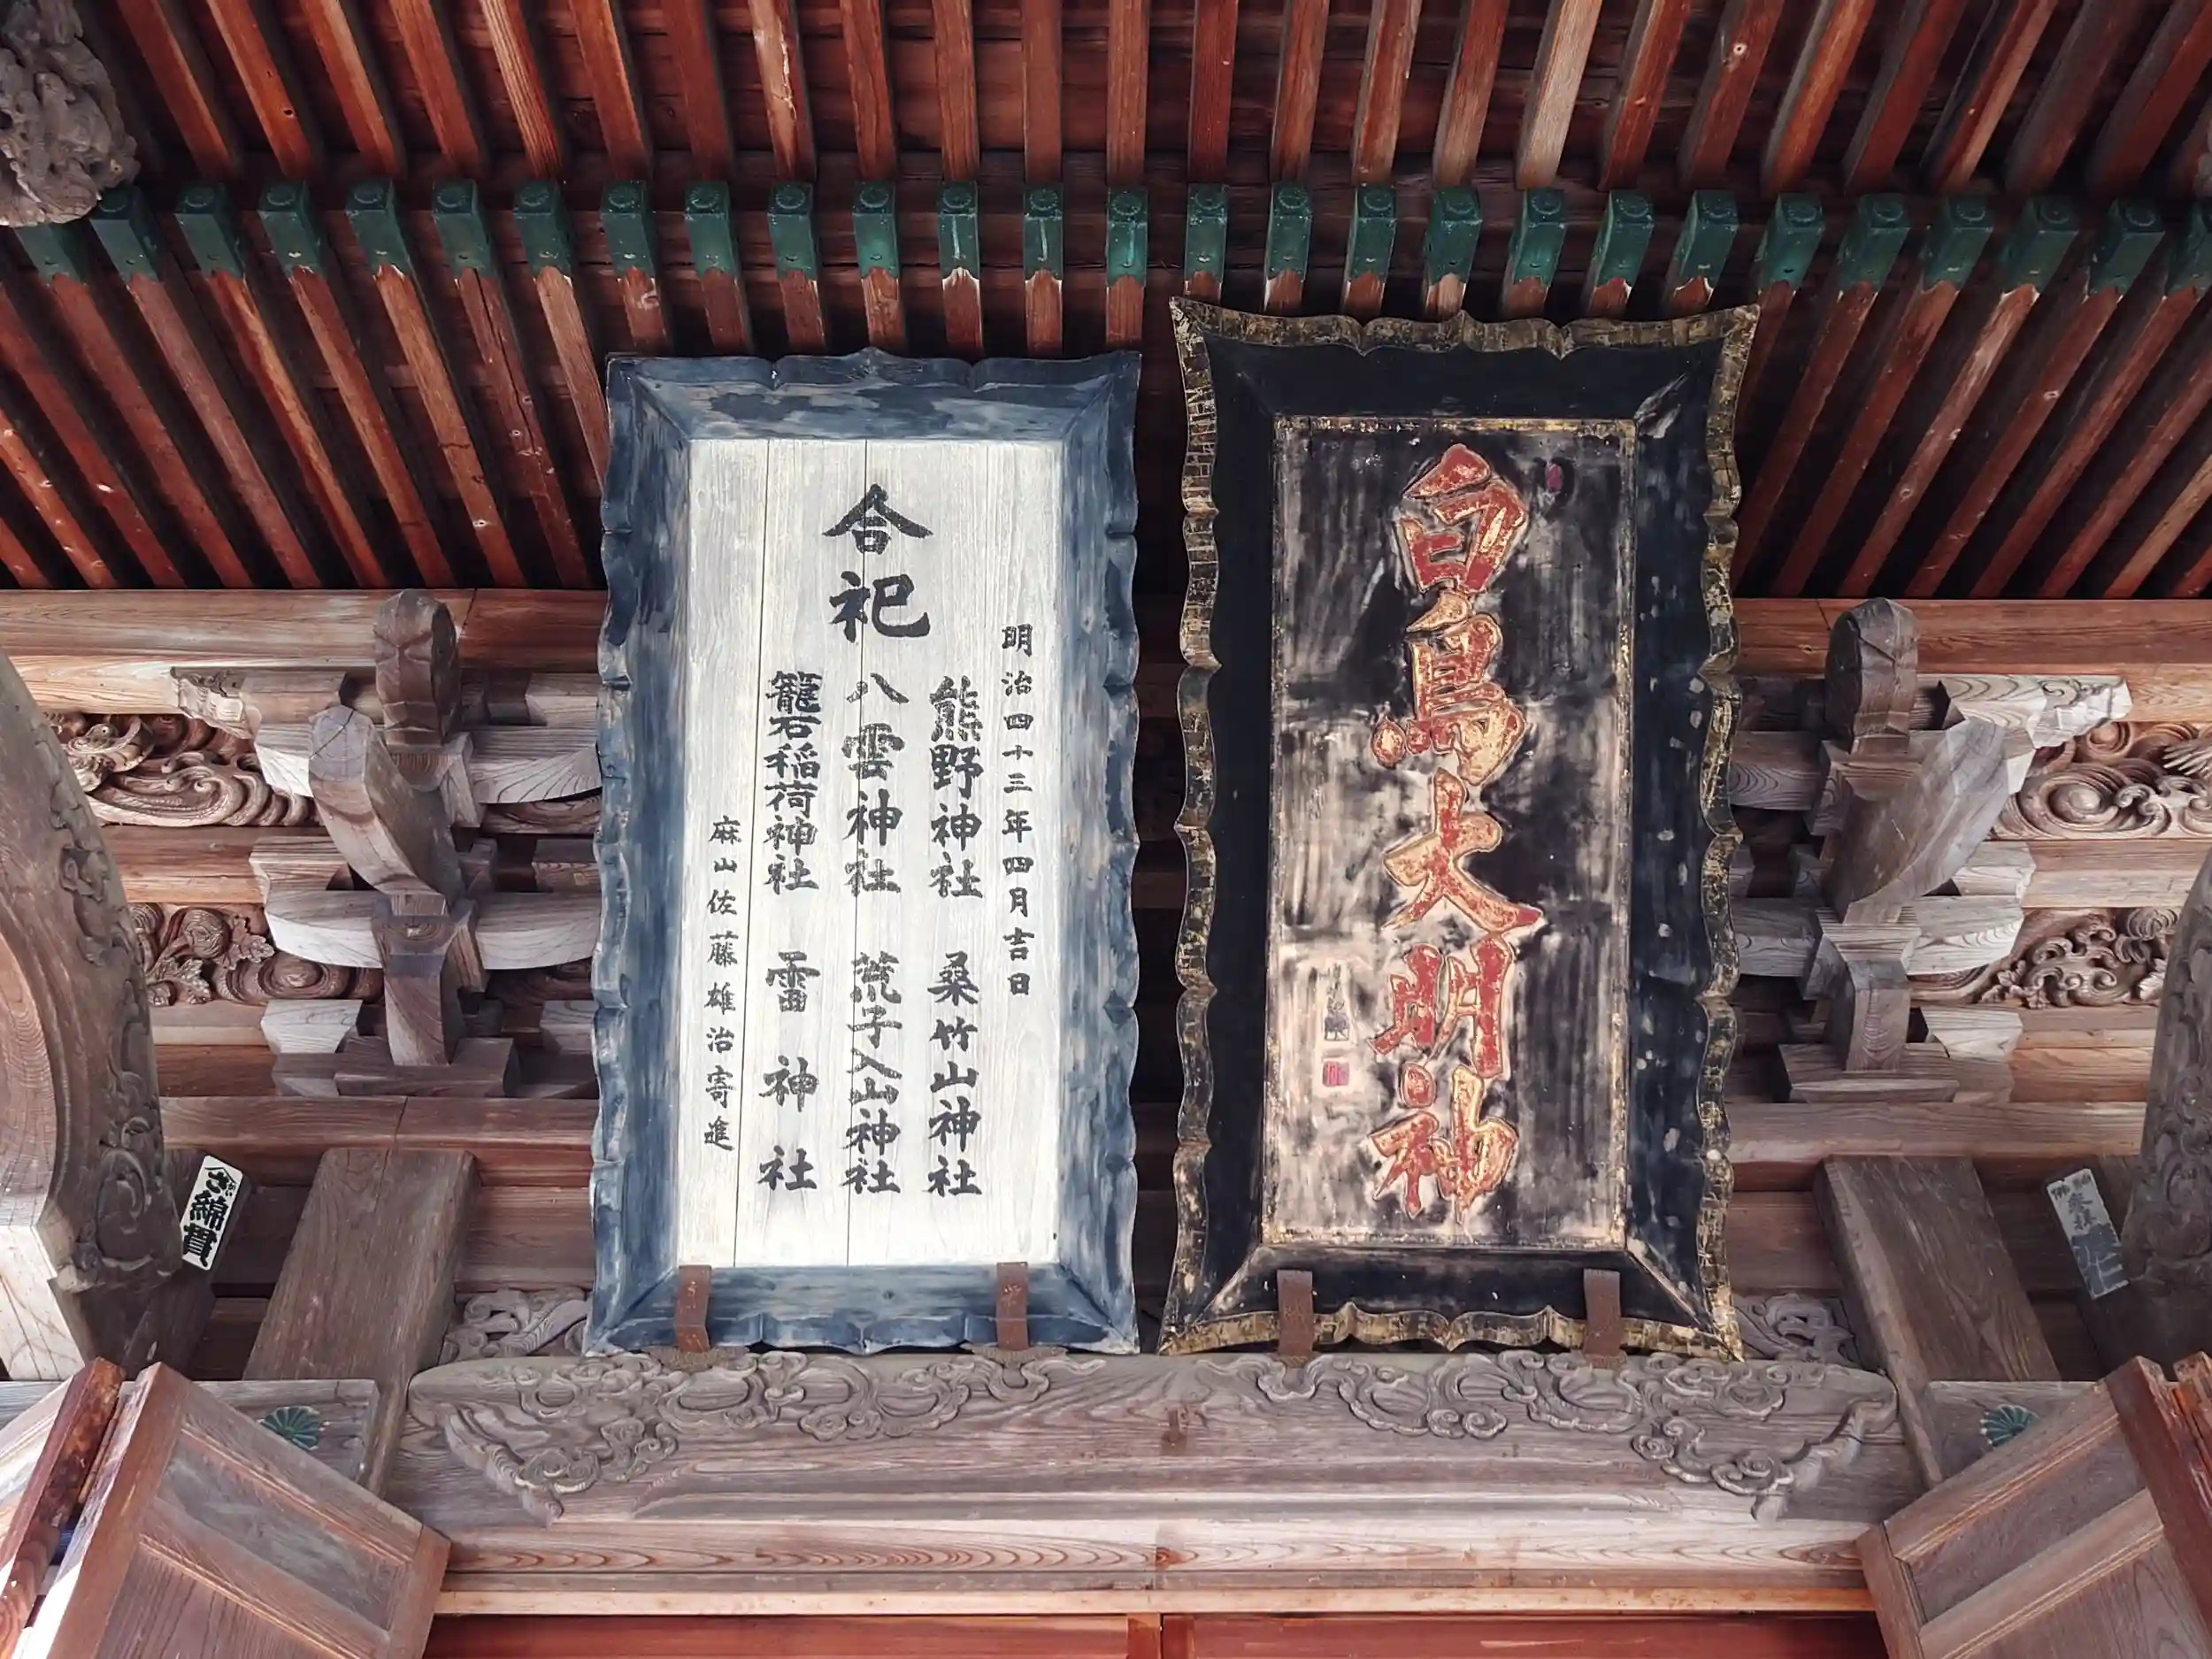 白鳥大明神
合祀
明治四十三年四月吉日
熊野神社 桑竹山神社
八雲神社 荒子入山神社
籠石稲荷神社 雷神社
麻山佐藤雄治寄進
綿貫